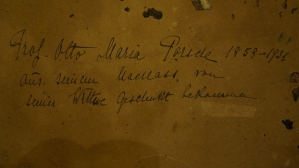 Prof. Otto Maria Porsche 1858-1931
aus seinem Nachlass von
seiner Wittwe geschenkt bekommen